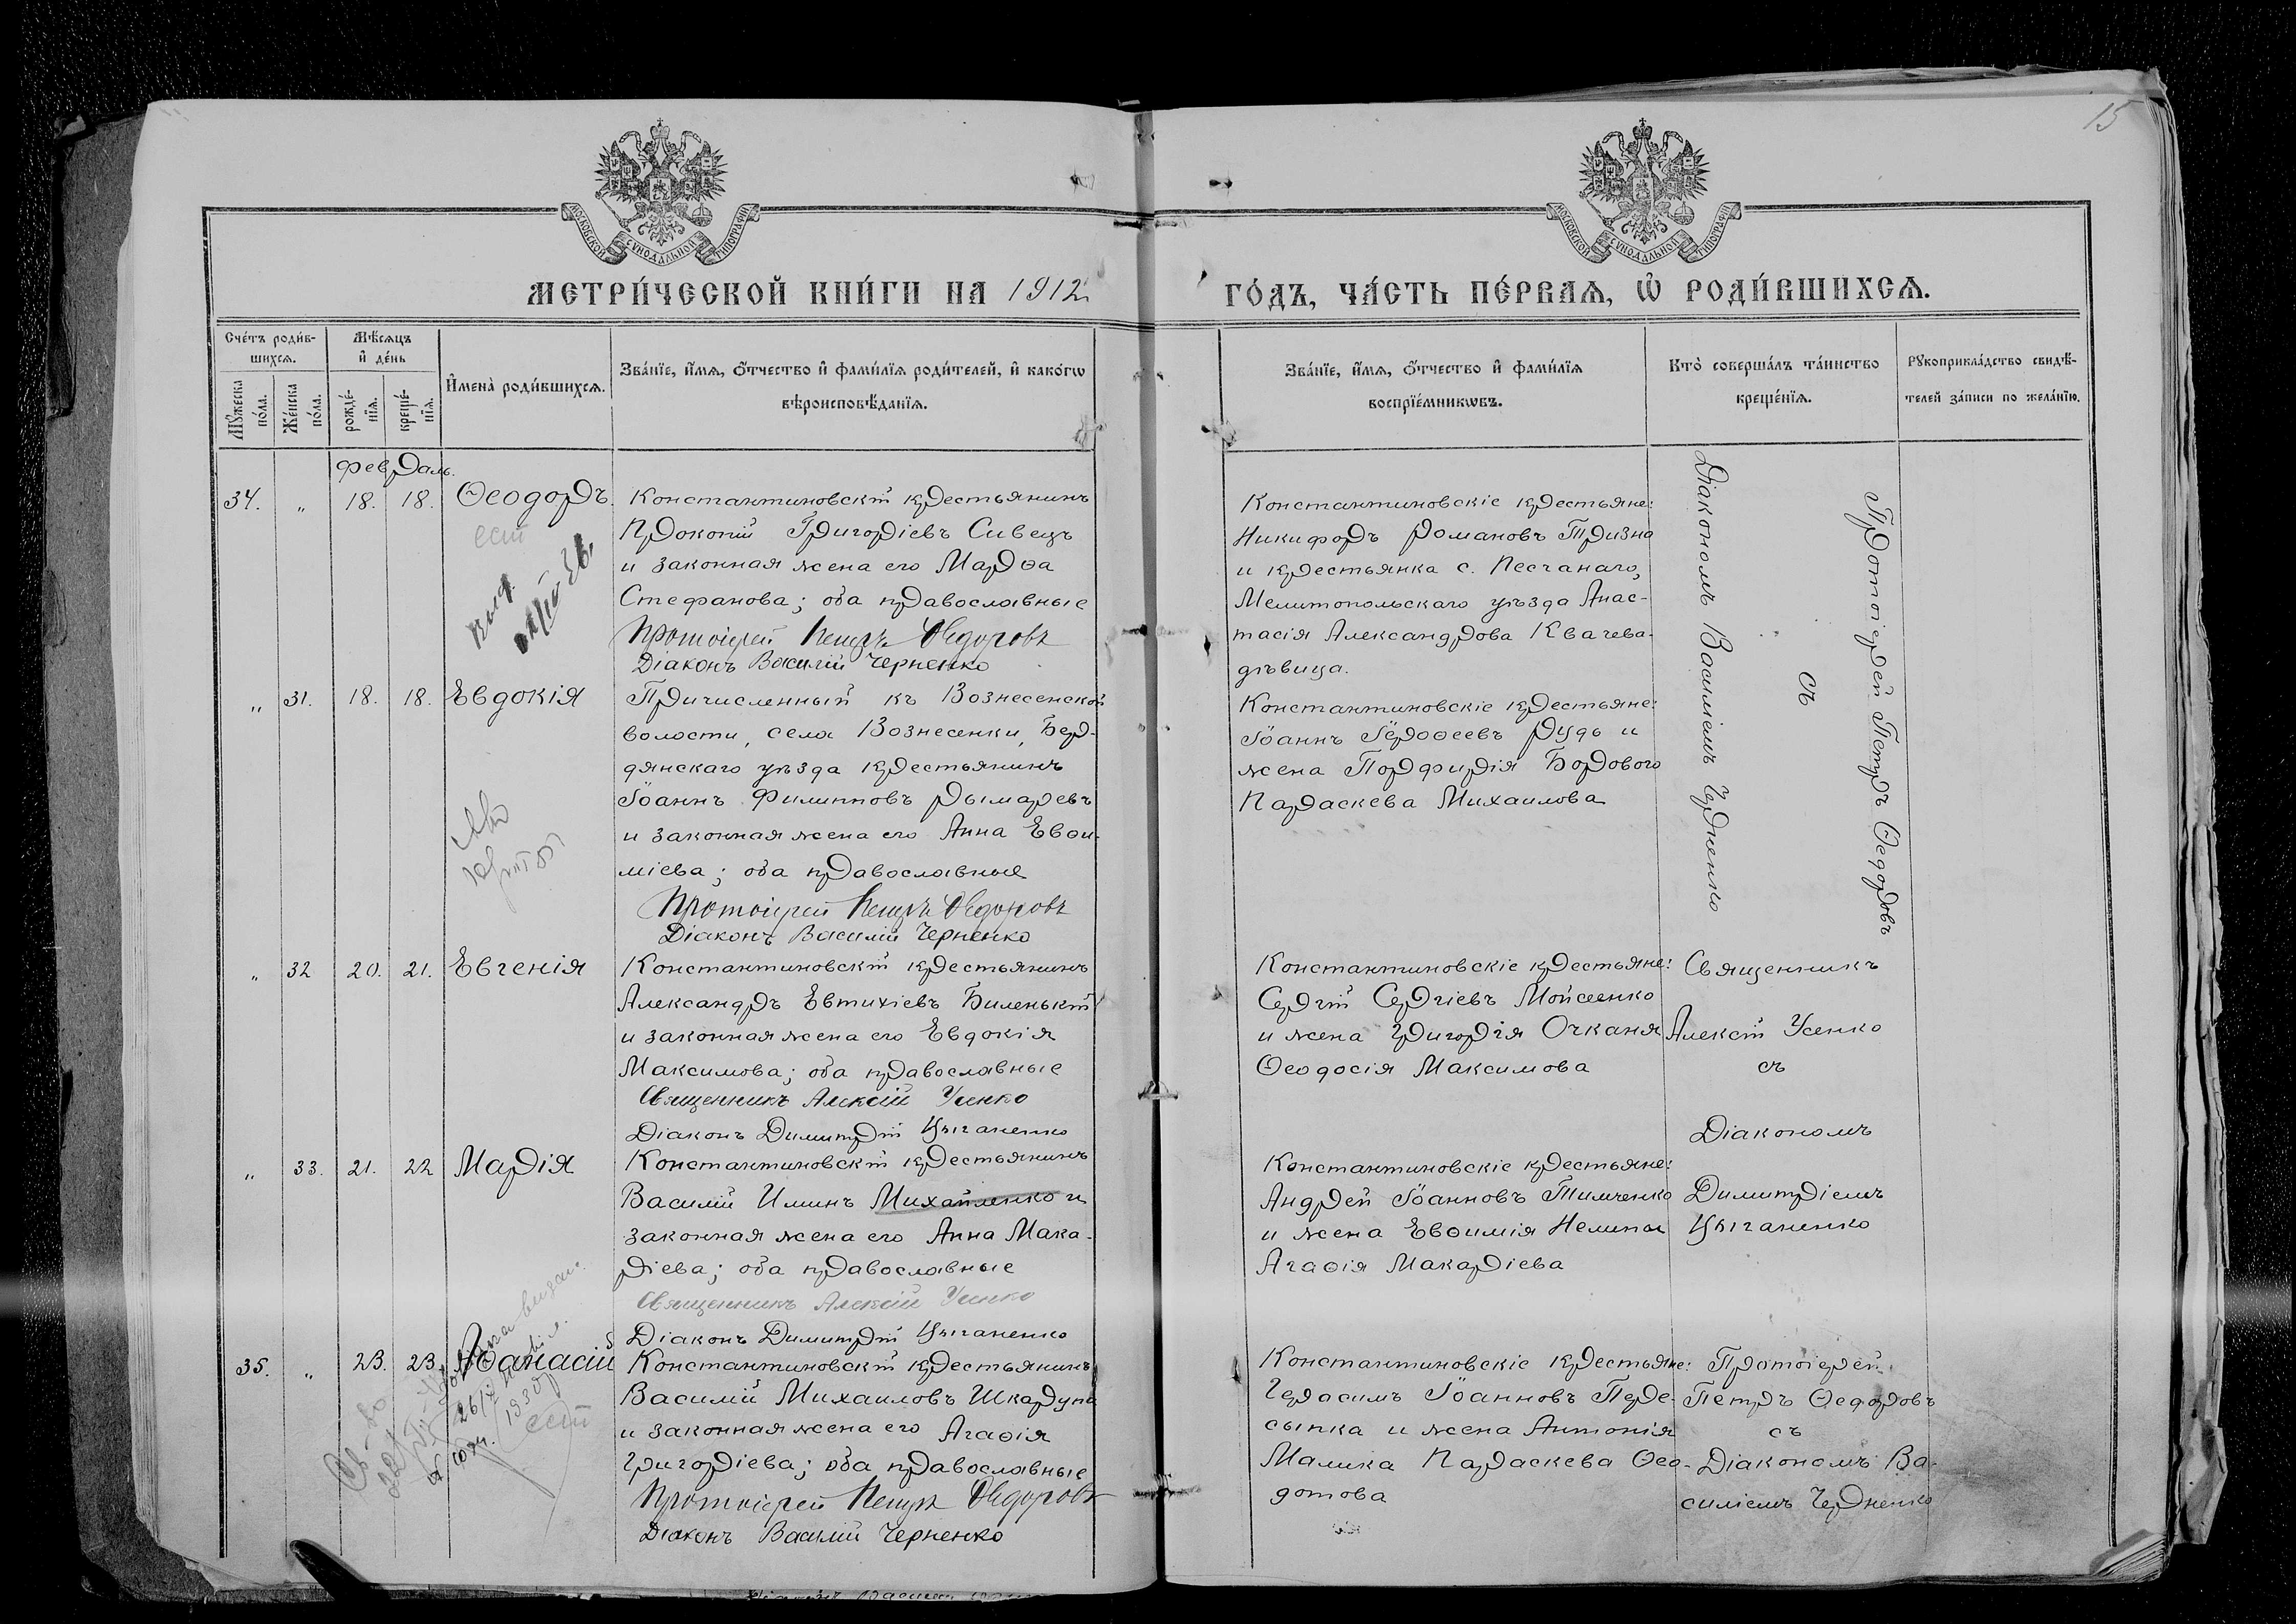 15
МОСКОВСКОЙ СѴНОДАЛЬНОЙ ТИПОГРАФІИ
МОСКОВСКОЙ СѴНОДАЛЬНОЙ ТИПОГРАФІИ
МЕТРИ́ЧЕСКОЙ КНИ́ГИ НА 1912
ГО́ДЪ, ЧА́СТЬ ПЕ́РВАЯ, Ѽ РОДИ́ВШИХСЯ.
Сче́тъ роди́в-
шихся.
Мѣ́сяцъ
и҆ де́нь
Мꙋ́жеска
по́ла.
Же́нска
по́ла.
рожде́-
нїѧ.
креще́-
нїѧ.
И҆мена̀ роди́вшихся.
Зва́нїе, и҆́мѧ, ѻ҆́тчество и҆ фами́лїѧ роди́телей, и҆ како́гѡ
вѣроисповѣ́данїѧ.
Зва́нїе, и҆́мѧ, ѻ҆́тчество и҆ фами́лїѧ
воспрїе́мникѡвъ.
Кто̀ соверша́лъ та́инство
креще́нїѧ.
Рꙋкоприкла́дство свидѣ́-
телей за́писи по жела́нїю.
Февраль.
34. „ 18. 18. Ѳеодоръ.
Константиновскій крестьянинъ
Прокопій Григоріевъ Сивецъ
и законная жена его Марѳа
Стефанова; оба православные
Протоіерей Петръ Ѳедоровъ
Діаконъ Василій Черненко
Константиновскіе крестьяне:
Никифоръ Романовъ Тризна
и крестьянка с. Песчанаго,
Мелитопольскаго уѣзда Анас-
тасія Александрова Квачева-
дѣвица.
Протоіерей Петръ Ѳеодоровъ
съ
Діакономъ Василіемъ Черненко
„ 31. 18. 18. Евдокія
Причисленный къ Вознесенской
волости, села Вознесенки, Бер-
дянскаго уѣзда крестьянинъ
Іоаннъ Филипповъ Рымаревъ
и законная жена его Анна Евѳи-
міева; оба православные
Протоіерей Петръ Ѳедоровъ
Діаконъ Василій Черненко
Константиновскіе крестьяне:
Іоаннъ Іероѳеевъ Рудь и
жена Порфирія Бордового
Параскева Михаилова
„ 32 20. 21. Евгенія
Константиновскій крестьянинъ
Александръ Евтихіевъ Биленькій
и законная жена его Евдокія
Максимова; оба православные
Священникъ Алексій Усенко
Діаконъ Димитрій Цыганенко
Константиновскіе крестьяне:
Сергій Сергіевъ Мойсеенко
и жена Григорія Очканя
Ѳеодосія Максимова
Священникъ
Алексій Усенко
съ
Діакономъ
Димитріемъ
Цыганенко
„ 33. 21. 22 Марія
Константиновскій крестьянинъ
Василій Илиинъ Михайленко и
законная жена его Анна Мака-
ріева; оба православные
Священникъ Алексій Усенко
Діаконъ Димитрій Цыганенко
Константиновскіе крестьяне:
Андрей Іоанновъ Тимченко
и жена Евѳимія Нелипы
Агаѳія Макаріева
35. „ 23. 23. Аѳанасій
Константиновскій крестьянинъ
Василій Михаиловъ Шкарупа
и законная жена его Агаѳія
Григоріева; оба православные
Протоіерей Петръ Ѳедоровъ
Діаконъ Василій Черненко
Константиновскіе крестьяне:
Герасимъ Іоанновъ Пере-
сыпка и жена Антонія
Малика Параскева Ѳео-
дотова
Протоіерей
Петръ Ѳеодоровъ
съ
Діакономъ Ва-
силіемъ Черненко